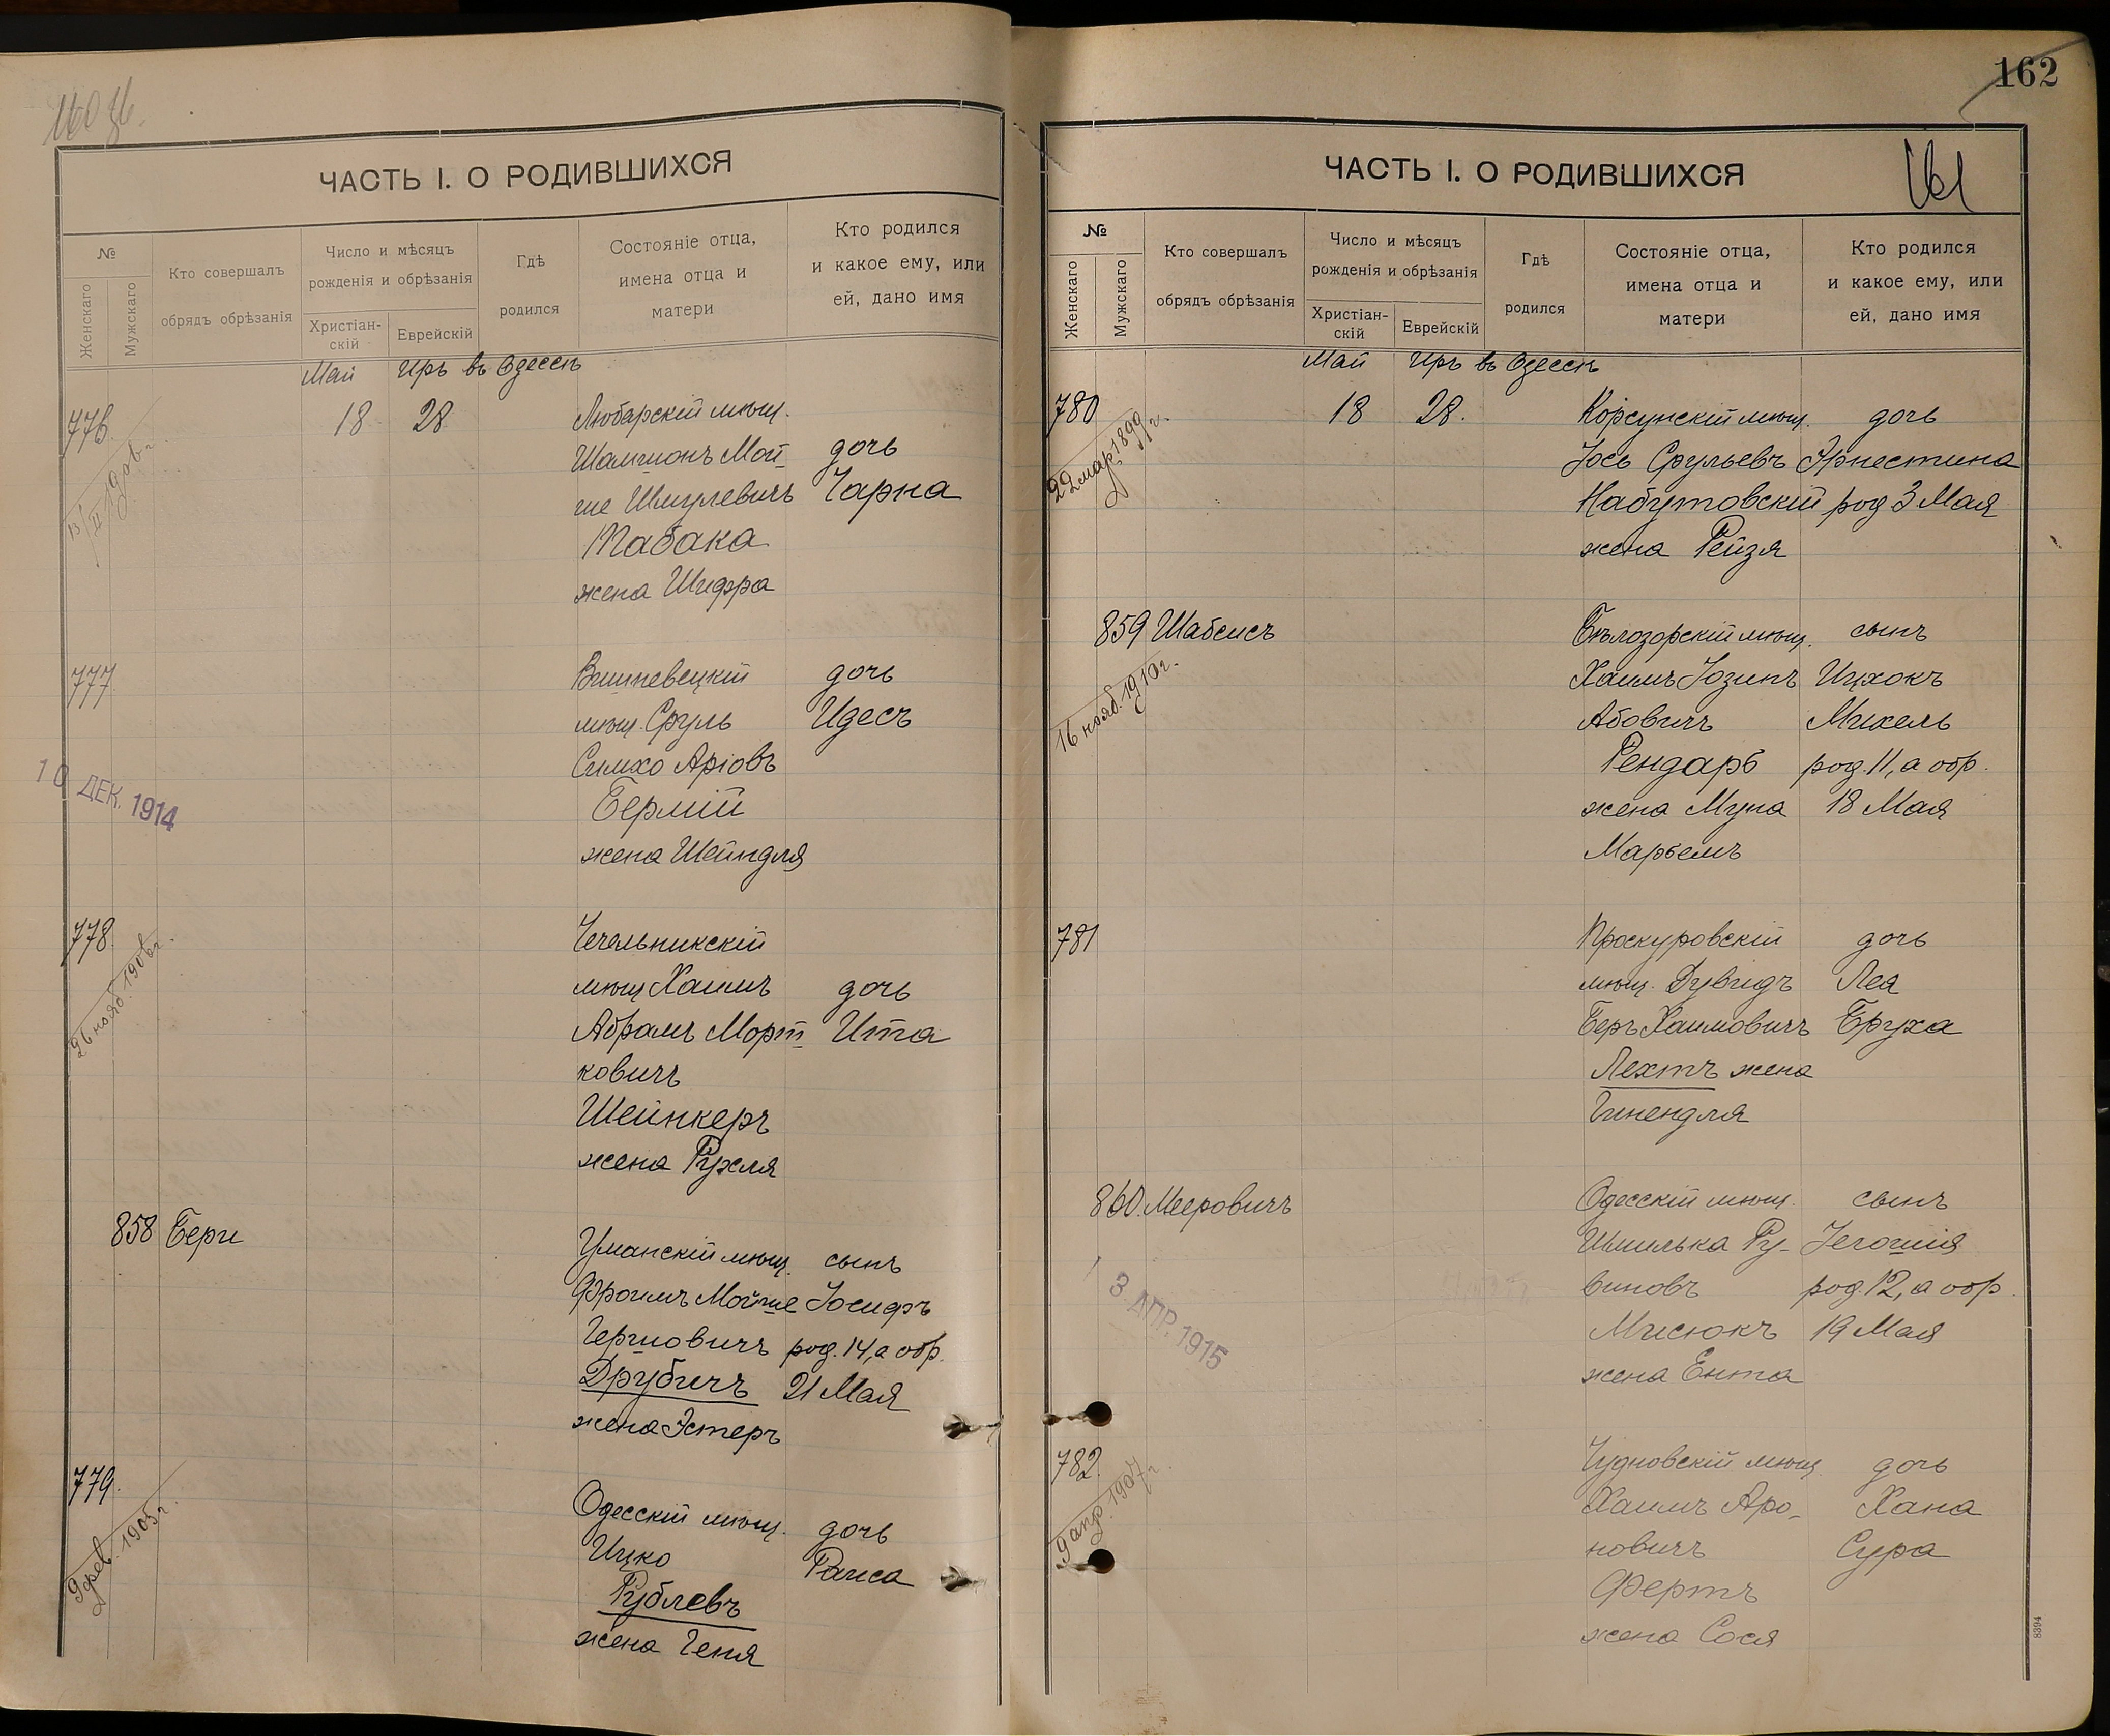 ЧАСТЬ I. О РОДИВШИХСЯ
№
Женскаго
Мужскаго
Кто совершалъ
обрядъ обрѣзанія
Число и мѣсяцъ
рожденія и обрѣзанія
Христіан-
скій
Еврейскій
Гдѣ
родился
Состояніе отца,
имена отца и
матери
Кто родился
и какое ему, или
ей, дано имя
Май Иръ въ Одессѣ
776. 18 28 Любарскій мѣщ.
Шамшонъ Мой- дочь
ше Шмулевичъ Чарна
Табака
жена Шифра
777 Вишневецкій дочь
мѣщ. Сруль Идесъ
Симхо Аріовъ
10 ДЕК. 1914
Бермій
жена Шейндля
778. Чечельникскій
26 нояб. 1906 г.
мѣщ Хаимъ дочь
Абрамъ Морт- Ита
ковичъ
Шейнкеръ
жена Рухля
858 Берги
Уманскій мѣщ. сынъ
Фроимъ Мойше Іосифъ
Гершовичъ род. 14, а обр.
Друбичъ 21 Мая
жена Эстеръ
779.
9 фев. 1905 г.
Одесскій мѣщ. дочь
Ицко Раиса
Рублевъ
жена Геня
162
161
ЧАСТЬ I. О РОДИВШИХСЯ
№
Женскаго
Мужскаго
Кто совершалъ
обрядъ обрѣзанія
Число и мѣсяцъ
рожденія и обрѣзанія
Христіан-
скій
Еврейскій
Гдѣ
родился
Состояніе отца,
имена отца и
матери
Кто родился
и какое ему, или
ей, дано имя
Май Иръ въ Одессѣ
780 18 28. Корсунскій мѣщ. дочь
22 мар. 1899 г.
Іось Срульевъ Эрнестина
Набутовскій род 3 Мая
жена Рейзя
859 Шабсисъ Бѣлозорскій мѣщ. сынъ
16 нояб. 1910 г.
Хаимъ Іозипъ Ицхокъ
Абовичъ Михель
Рендарь род. 11, а обр.
жена Муна 18 Мая
Марьемъ
781 Проскуровскій дочь
мѣщ. Дувидъ Леа
Беръ Хаимовичъ Бруха
Лехтъ жена
Гинендля
860. Мееровичъ Одесскій мѣщ. сынъ
Шмилька Ру- Іегошія
виновъ род. 12, а обр.
13 АПР. 1915
Мисюкъ 19 Мая
жена Ента
782. Чудновскій мѣщ. дочь
9 апр. 1907 г.
Хаимъ Аро- Хана
новичъ Сура
Фертъ
жена Сося
8394